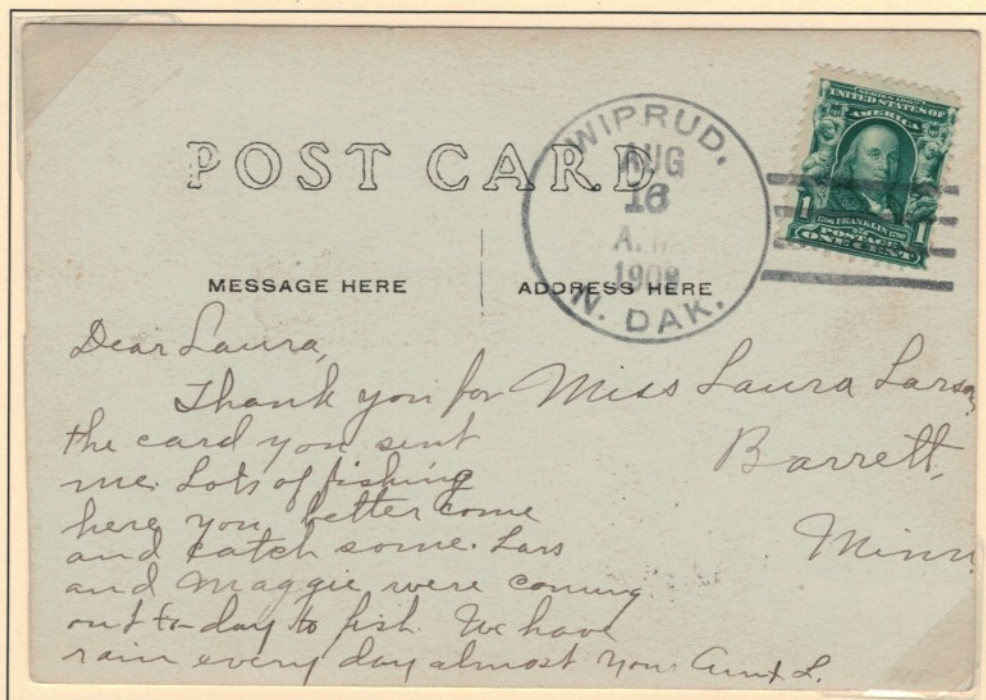 POST CARD
WIPRUD.
AUG
16
A.M.
1908
N. DAK.
SERIES 1902
UNITED STATES OF
AMERICA
1 1
1706 FRANKLIN 1790
POSTAGE
ONE CENT
MESSAGE HERE
ADDRESS HERE
Dear Laura,
Thank you for
the card you sent
me. Lots of fishing
here you better come
and catch some. Lars
and Maggie were coming
out to-day to fish. We have
rain every day almost your Aunt L.
Miss Laura Larson,
Barrett,
Minn.